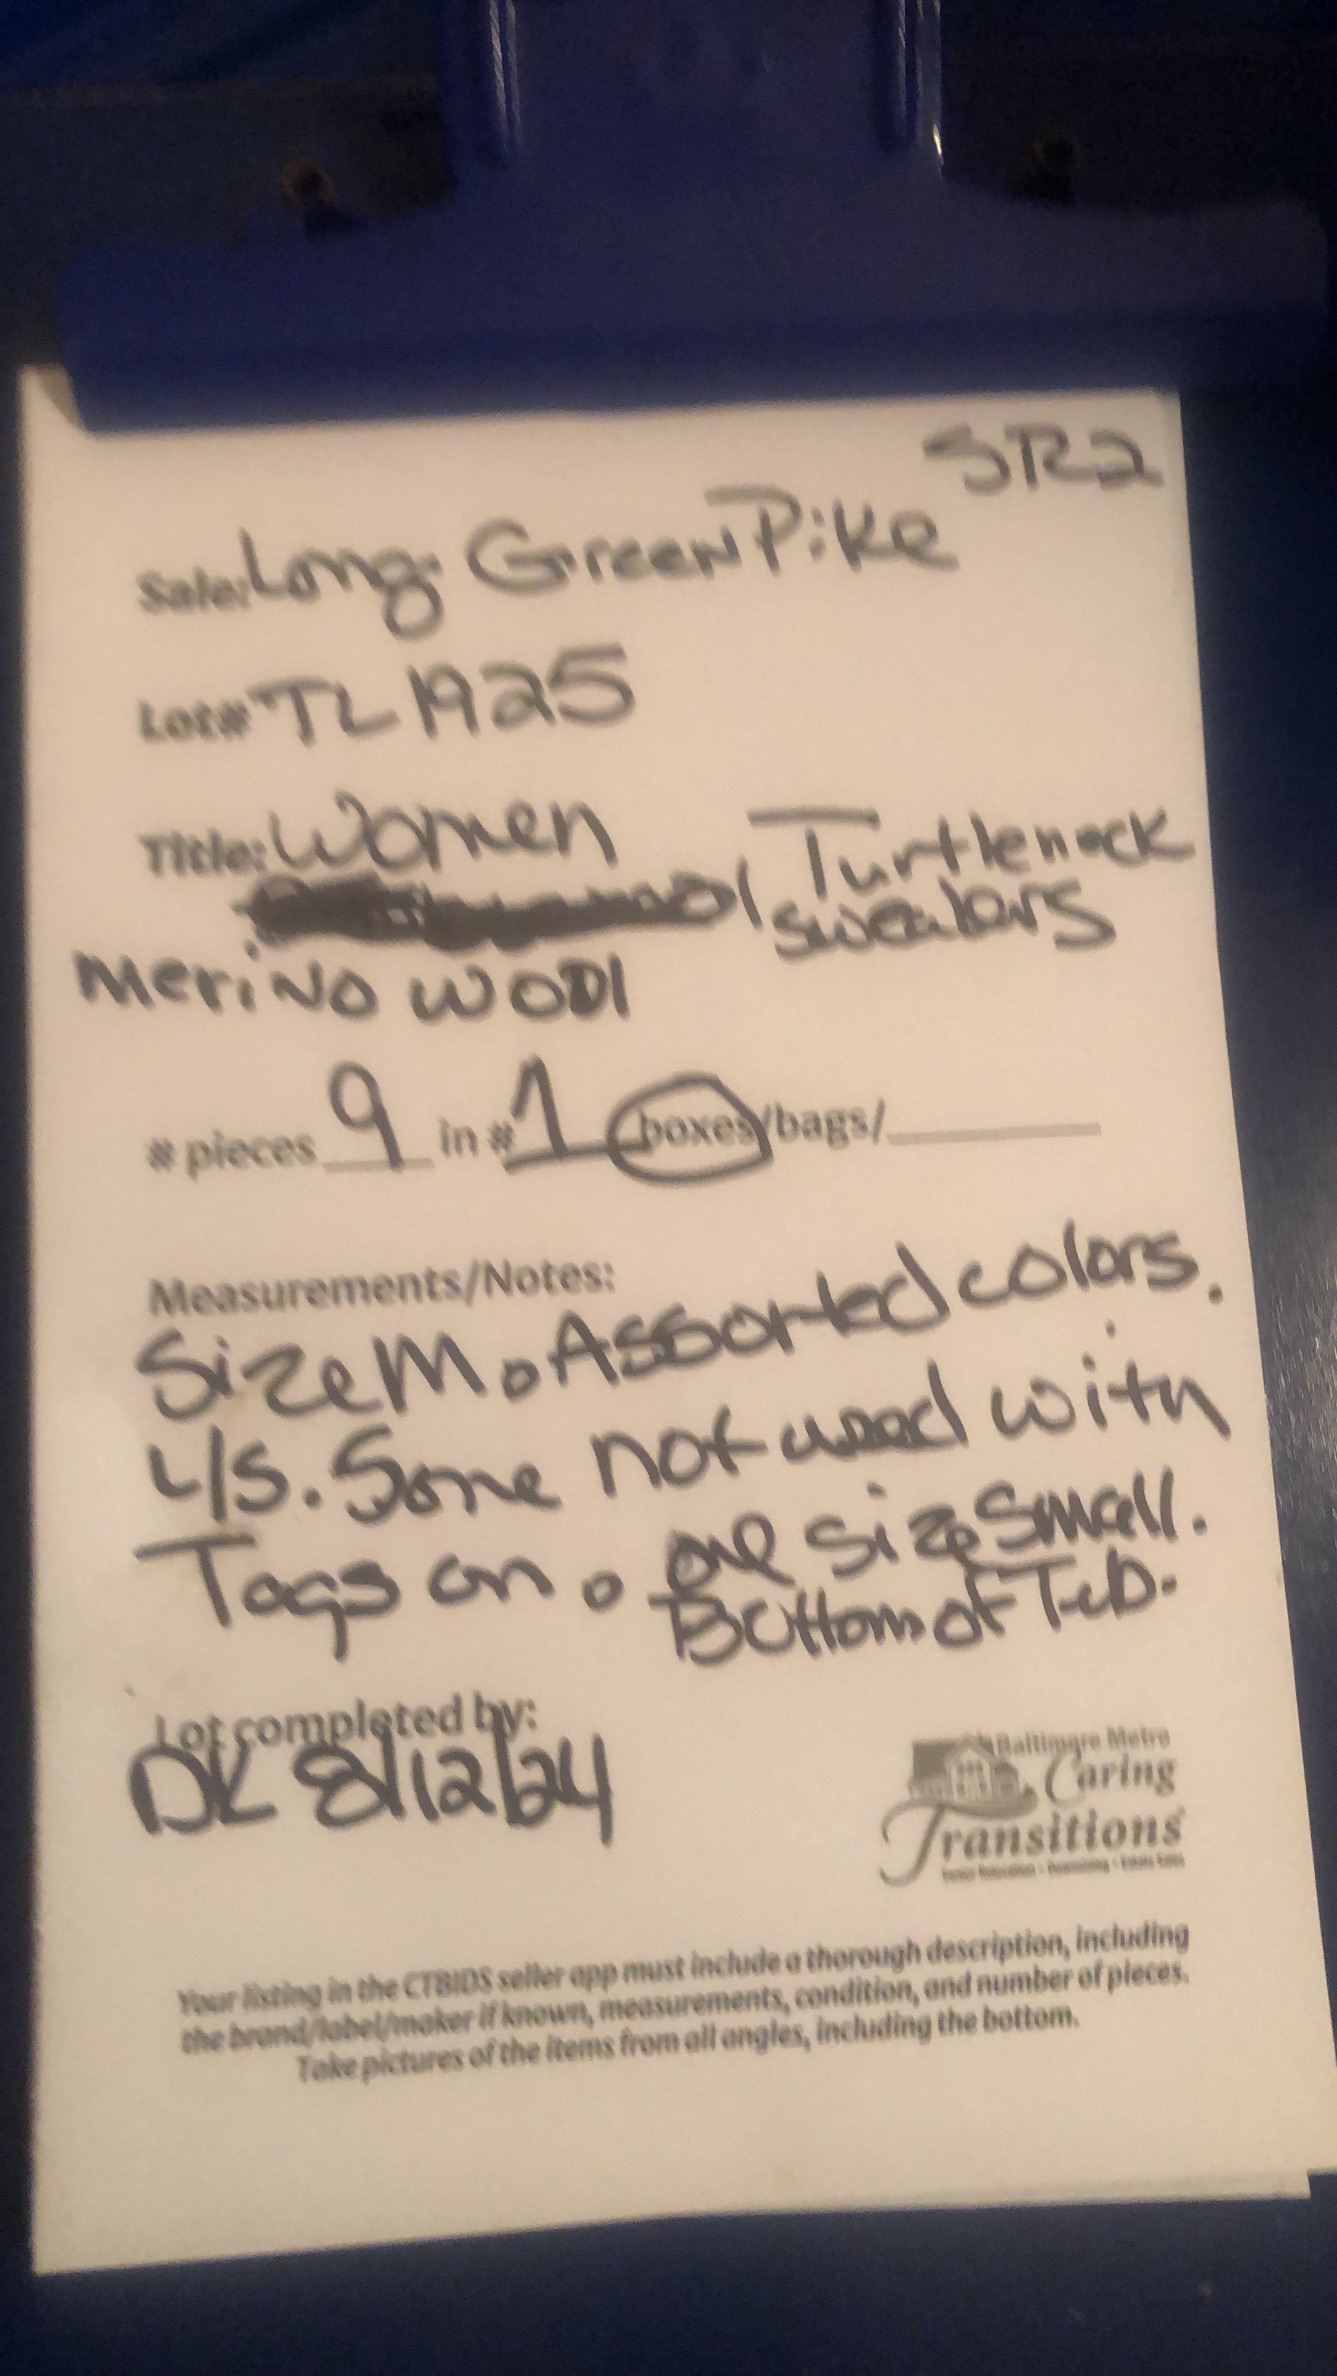 SR2
Sale: Long Green Pike
Lot# TL1925
Title: Women Turtleneck
sweaters
Merino Wool
# pieces 9 in # 1 boxes/bags/
Measurements/Notes:
Size M. Assorted colors.
L/S. Some not used with
Tags on. one size small.
Bottom of Tub.
Lot completed by:
DK 8/12/24
Baltimore Metro
Caring
Transitions
Your listing in the CTBIDS seller app must include a thorough description, including
the brand/label/maker if known, measurements, condition, and number of pieces.
Take pictures of the items from all angles, including the bottom.